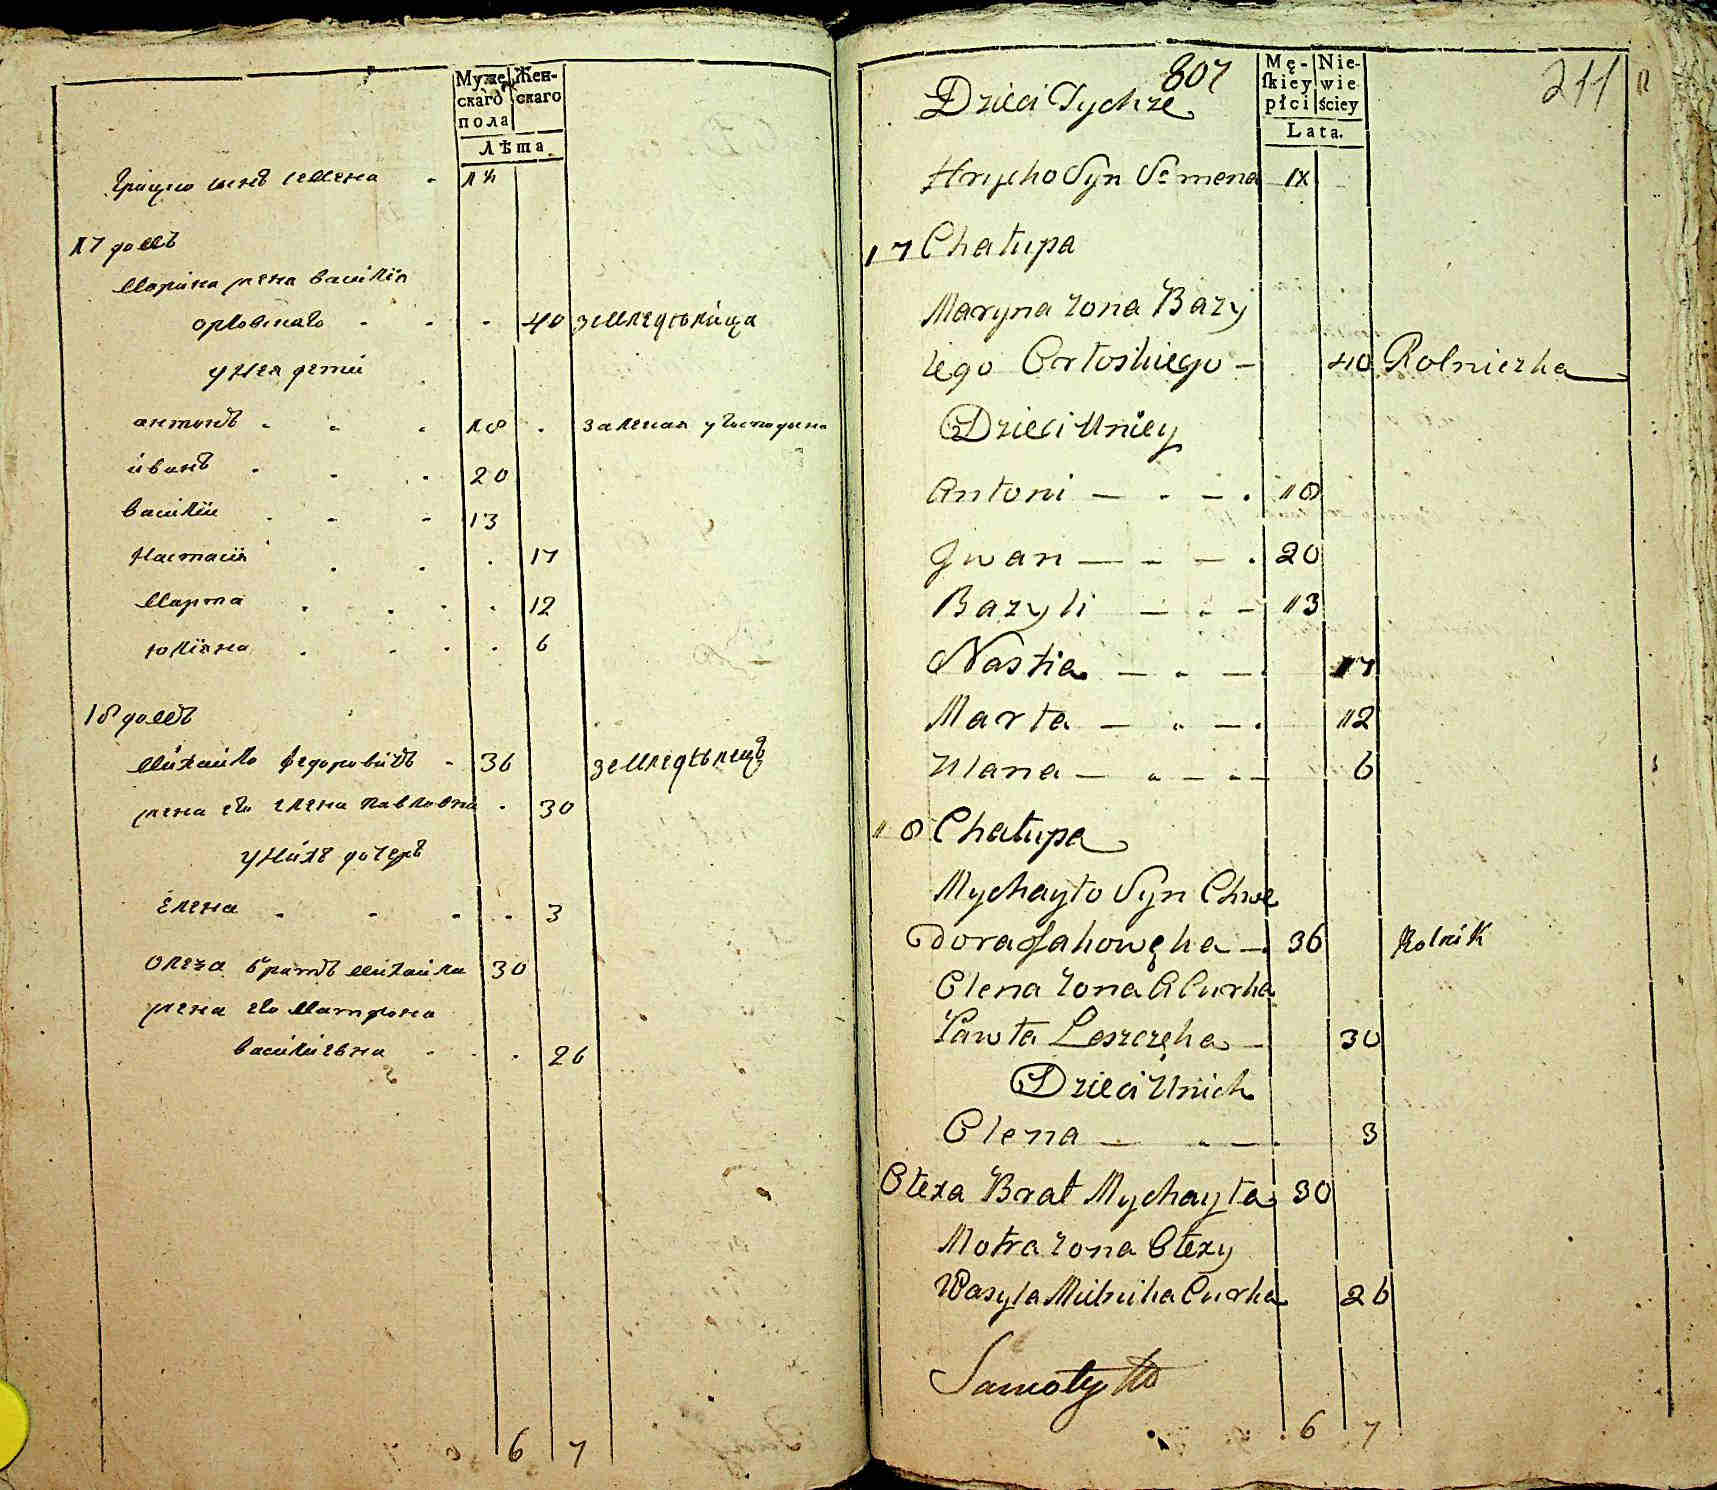 Муже- Жен-
скаго скаго
пола
Лѣта
Грицко сынъ семена
17 домъ
Марина жена василія
орловскаго 40 земледѣлица
у нея дети
антонъ 18
иванъ 20
василій 13
Настасія 17
Марта 12
юліяна 6
18 домъ
Михайло федоровичъ 36 земледѣлецъ
жена его елена павловна 30
у нихъ дочерь
елена 3
олекса братъ михайла 30
жена его Матрона
василиевна 26
6 7
807
211
Mę- Nie-
skiey wie
płci ściey
Lata.
Dzieci Tychże
Hrycko Syn Semena
17 Chałupa
Maryna żona Bazy
lego 40 Rolniczka
Dzieci U niey
Antoni 18
Jwan 20
Bazyli 13
Nastia 17
Marta 12
Ulana 6
18 Chałupa
Mychayło Syn Chwe
dora 36 Rolnik
Olena żona A Curka
Pawła Leszczęka 30
Dzieci U nich
Olena 3
Ołexa Brat Mychayła 30
Motra żona Ołexy
Wasyla Mielnika Curka 26
6 7